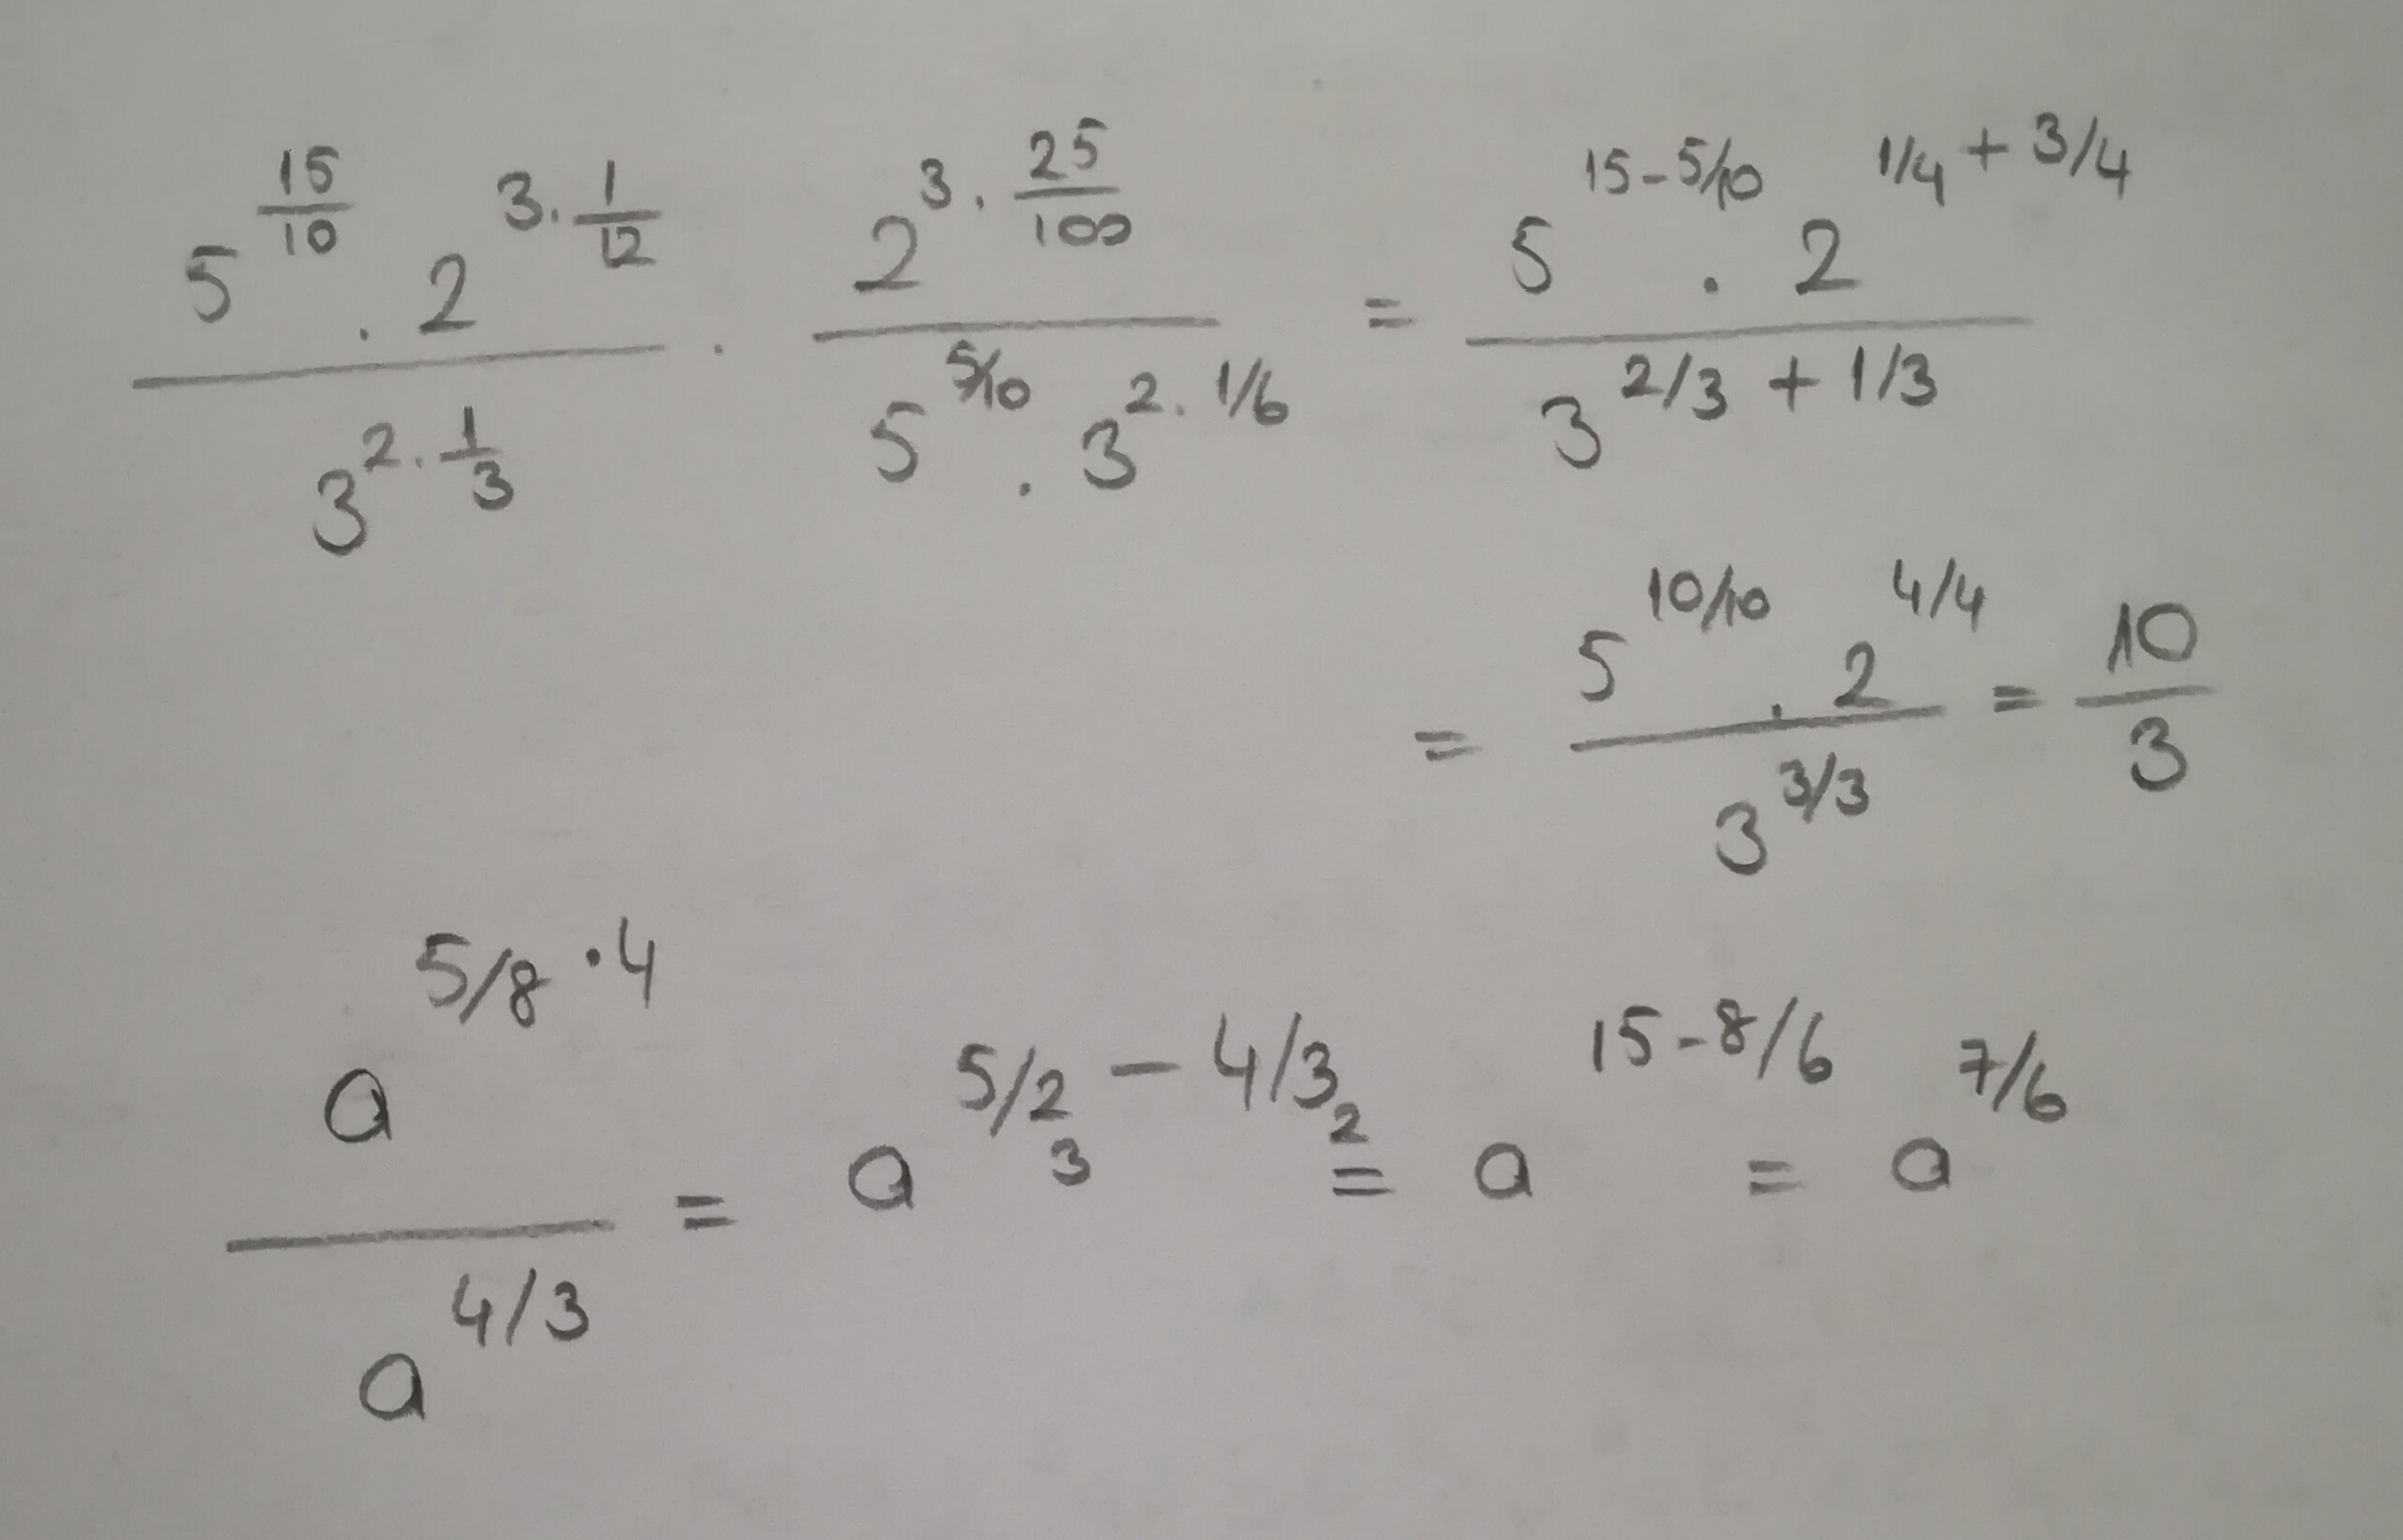 5^(15/10) . 2^(3. 1/12) / 3^(2. 1/3) . 2^(3. 25/100) / 5^(5/10) . 3^(2. 1/6) = 5^(15-5/10) . 2^(1/4 + 3/4) / 3^(2/3 + 1/3)
= 5^(10/10) . 2^(4/4) / 3^(3/3) = 10/3
a^(5/8 · 4) / a^(4/3) = a^(5/2 - 4/3) = a^(15-8/6) = a^(7/6)
3 2